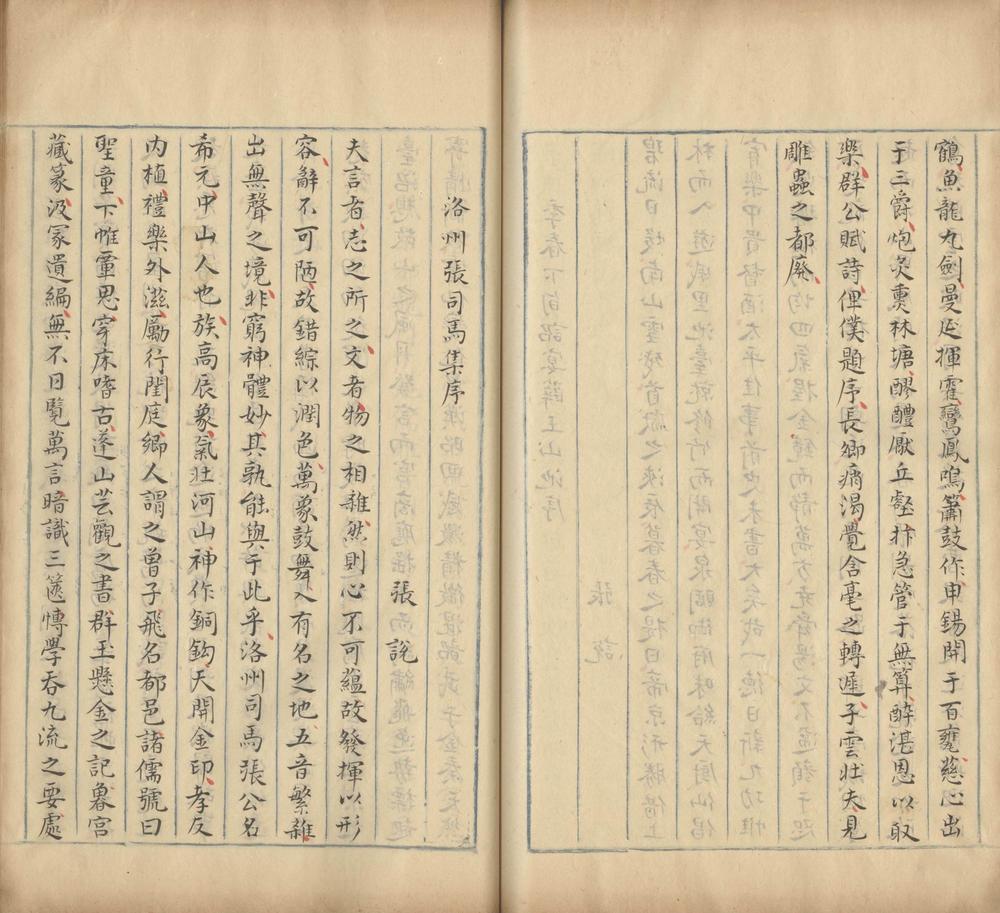 鶴魚龍九劍曼延揮霍鸞鳳鳴簫鼓作申錫開于百甕慈心出
于三爵炮炙熏林塘醪醴厭丘壑抃急管于無算醉湛恩以取
樂群公賦詩俾僕題序長卿痟渴覺含毫之轉遲子雲壯夫見
雕蟲之都廢
洛州張司馬集序
張說
夫言者志之所之文者物之相雜然則心不可蘊故發揮以形
容辭不可陋故錯綜以潤色萬象鼓舞入有名之地五音繁雜
出無聲之境非窮神體妙其孰能與于此乎洛州司馬張公名
希元中山人也族高辰象氣壯河山神作銅鈎天開金印孝反
内植禮樂外滋勵行閨庭鄉人謂之曾子飛名都邑諸儒號曰
聖童下帷覃思穿床嗜古蓬山芸觀之書群玉懸金之記魯宮
藏篆汲冢遺編無不日覽萬言暗識三篋慱學吞九流之要處